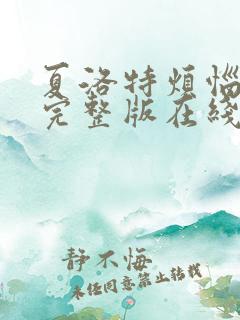 夏洛特烦恼
完整版在线
静不悔
未经同意禁止转载